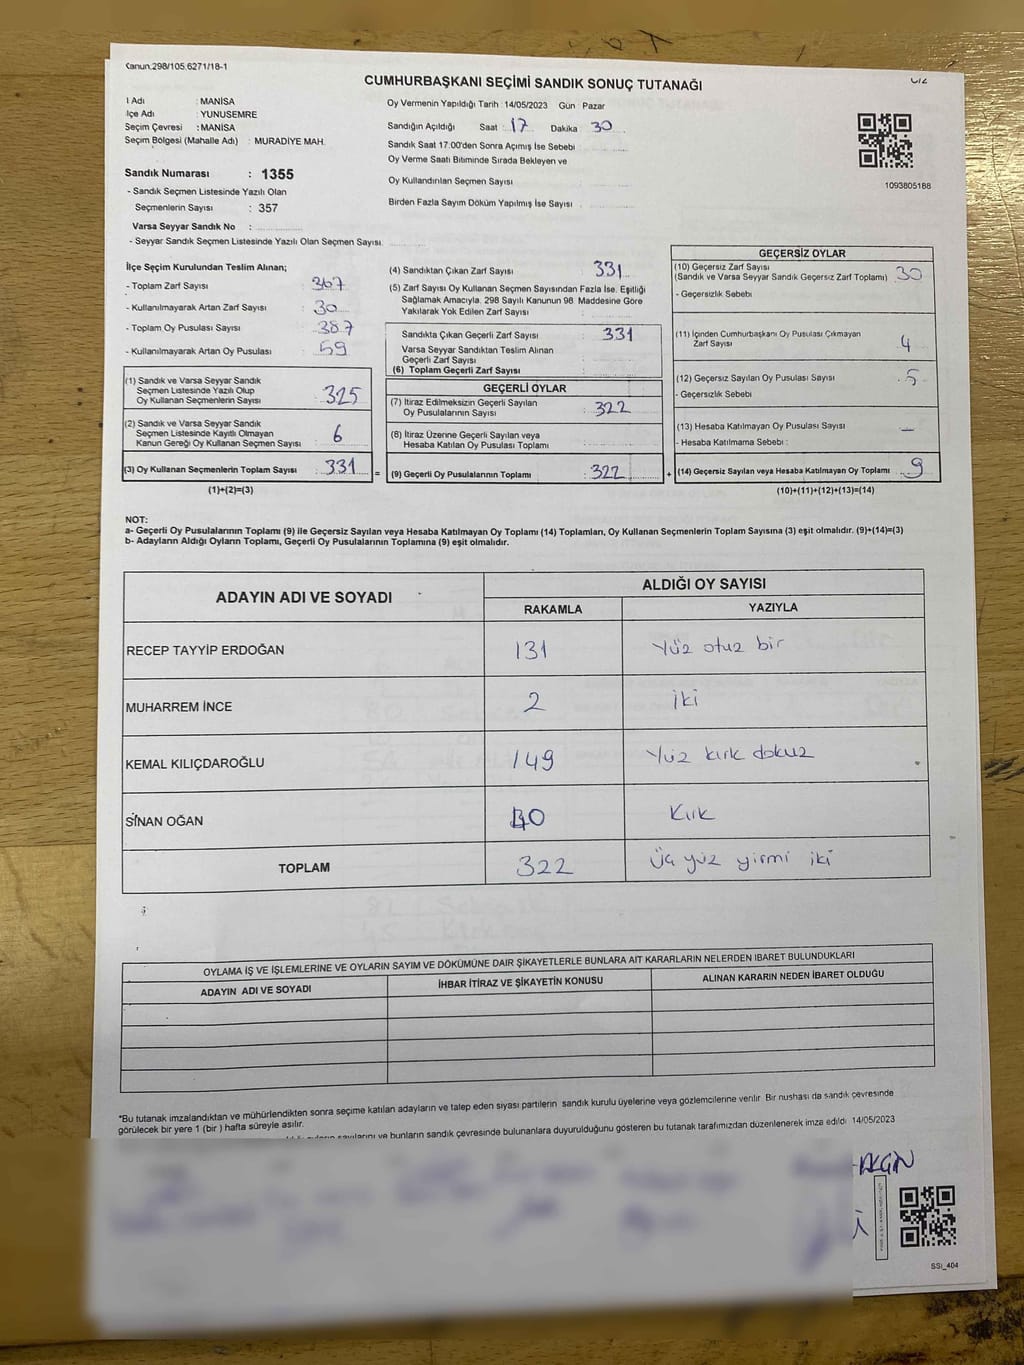 Kanun.298/105.6271/18-1
CUMHURBAŞKANI SEÇİMİ SANDIK SONUÇ TUTANAĞI
l Adı : MANİSA
lçe Adı : YUNUSEMRE
Seçim Çevresi : MANİSA
Seçim Bölgesi (Mahalle Adı) : MURADİYE MAH.
Sandık Numarası : 1355
- Sandık Seçmen Listesinde Yazılı Olan
Seçmenlerin Sayısı : 357
Varsa Seyyar Sandık No :
- Seyyar Sandık Seçmen Listesinde Yazılı Olan Seçmen Sayısı.
Oy Vermenin Yapıldığı Tarih : 14/05/2023 Gün : Pazar
Sandığın Açıldığı Saat : 17 Dakika 30
Sandık Saat 17:00'den Sonra Açımış İse Sebebi :
Oy Verme Saati Bitiminde Sırada Bekleyen ve
Oy Kullandırılan Seçmen Sayısı :
Birden Fazla Sayım Döküm Yapılmış İse Sayısı :
1093805188
İlçe Seçim Kurulundan Teslim Alınan;
- Toplam Zarf Sayısı : 367
- Kullanılmayarak Artan Zarf Sayısı : 30
- Toplam Oy Pusulası Sayısı : 387
- Kullanılmayarak Artan Oy Pusulası : 59
(1) Sandık ve Varsa Seyyar Sandık
Seçmen Listesinde Yazılı Olup
Oy Kullanan Seçmenlerin Sayısı : 325
(2) Sandık ve Varsa Seyyar Sandık
Seçmen Listesinde Kayıtlı Olmayan
Kanun Gereği Oy Kullanan Seçmen Sayısı : 6
(3) Oy Kullanan Seçmenlerin Toplam Sayısı : 331 =
(1)+(2)=(3)
(4) Sandıktan Çıkan Zarf Sayısı : 331
(5) Zarf Sayısı Oy Kullanan Seçmen Sayısından Fazla İse. Eşitliği
Sağlamak Amacıyla. 298 Sayılı Kanunun 98. Maddesine Göre
Yakılarak Yok Edilen Zarf Sayısı :
Sandıkta Çıkan Geçerli Zarf Sayısı : 331
Varsa Seyyar Sandıktan Teslim Alınan
Geçerli Zarf Sayısı :
(6) Toplam Geçerli Zarf Sayısı :
GEÇERLİ OYLAR
(7) İtiraz Edilmeksizin Geçerli Sayılan
Oy Pusulalarının Sayısı : 322
(8) İtiraz Üzerine Geçerli Sayılan veya
Hesaba Katılan Oy Pusulası Toplamı :
(9) Geçerli Oy Pusulalarının Toplamı : 322 +
GEÇERSİZ OYLAR
(10) Geçersiz Zarf Sayısı
(Sandık ve Varsa Seyyar Sandık Geçersiz Zarf Toplamı) : 30
- Geçersizlik Sebebi
(11) İçinden Cumhurbaşkanı Oy Pusulası Çıkmayan
Zarf Sayısı : 4
(12) Geçersiz Sayılan Oy Pusulası Sayısı : 5
- Geçersizlik Sebebi
(13) Hesaba Katılmayan Oy Pusulası Sayısı : —
- Hesaba Katılmama Sebebi :
(14) Geçersiz Sayılan veya Hesaba Katılmayan Oy Toplamı : 9
(10)+(11)+(12)+(13)=(14)
NOT:
a- Geçerli Oy Pusulalarının Toplamı (9) ile Geçersiz Sayılan veya Hesaba Katılmayan Oy Toplamı (14) Toplamları, Oy Kullanan Seçmenlerin Toplam Sayısına (3) eşit olmalıdır. (9)+(14)=(3)
b- Adayların Aldığı Oyların Toplamı, Geçerli Oy Pusulalarının Toplamına (9) eşit olmalıdır.
ADAYIN ADI VE SOYADI ALDIĞI OY SAYISI
RAKAMLA YAZIYLA
RECEP TAYYİP ERDOĞAN 131 Yüz otuz bir
MUHARREM İNCE 2 iki
KEMAL KILIÇDAROĞLU 149 Yüz kırk dokuz
SİNAN OĞAN 40 Kırk
TOPLAM 322 Üç yüz yirmi iki
OYLAMA İŞ VE İŞLEMLERİNE VE OYLARIN SAYIM VE DÖKÜMÜNE DAİR ŞİKAYETLERLE BUNLARA AİT KARARLARIN NELERDEN İBARET BULUNDUKLARI
ADAYIN ADI VE SOYADI İHBAR İTİRAZ VE ŞİKAYETİN KONUSU ALINAN KARARIN NEDEN İBARET OLDUĞU
*Bu tutanak imzalandıktan ve mühürlendikten sonra seçime katılan adayların ve talep eden siyasi partilerin sandık kurulu üyelerine veya gözlemcilerine verilir. Bir nushası da sandık çevresinde
görülecek bir yere 1 (bir ) hafta süreyle asılır.
sayılarını ve bunların sandık çevresinde bulunanlara duyurulduğunu gösteren bu tutanak tarafımızdan düzenlenerek imza edildi 14/05/2023
SSİ_404